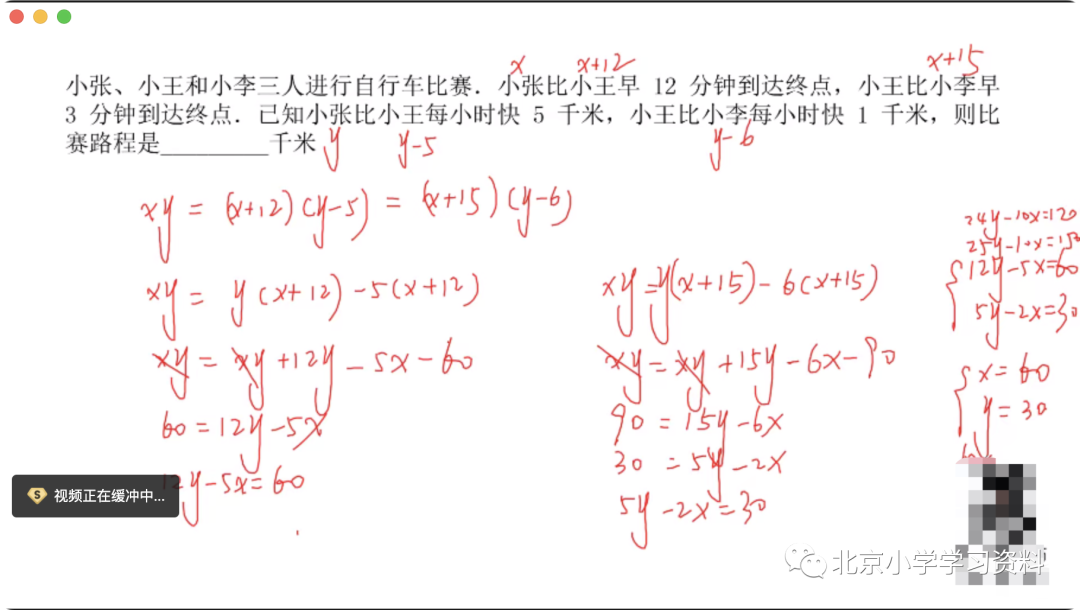 x x+12 x+15
小张、小王和小李三人进行自行车比赛．小张比小王早 12 分钟到达终点，小王比小李早
3 分钟到达终点．已知小张比小王每小时快 5 千米，小王比小李每小时快 1 千米，则比
赛路程是_________千米
y y-5 y-6
xy = (x+12)(y-5) = (x+15)(y-6)
xy = y(x+12)-5(x+12)
xy = xy+12y-5x-60
60=12y-5x
12y-5x=60
xy=y(x+15)-6(x+15)
xy=xy+15y-6x-90
90=15y-6x
30=5y-2x
5y-2x=30
24y-10x=120
25y-10x=150
12y-5x=60
5y-2x=30
x=60
y=30
视频正在缓冲中...
北京小学学习资料